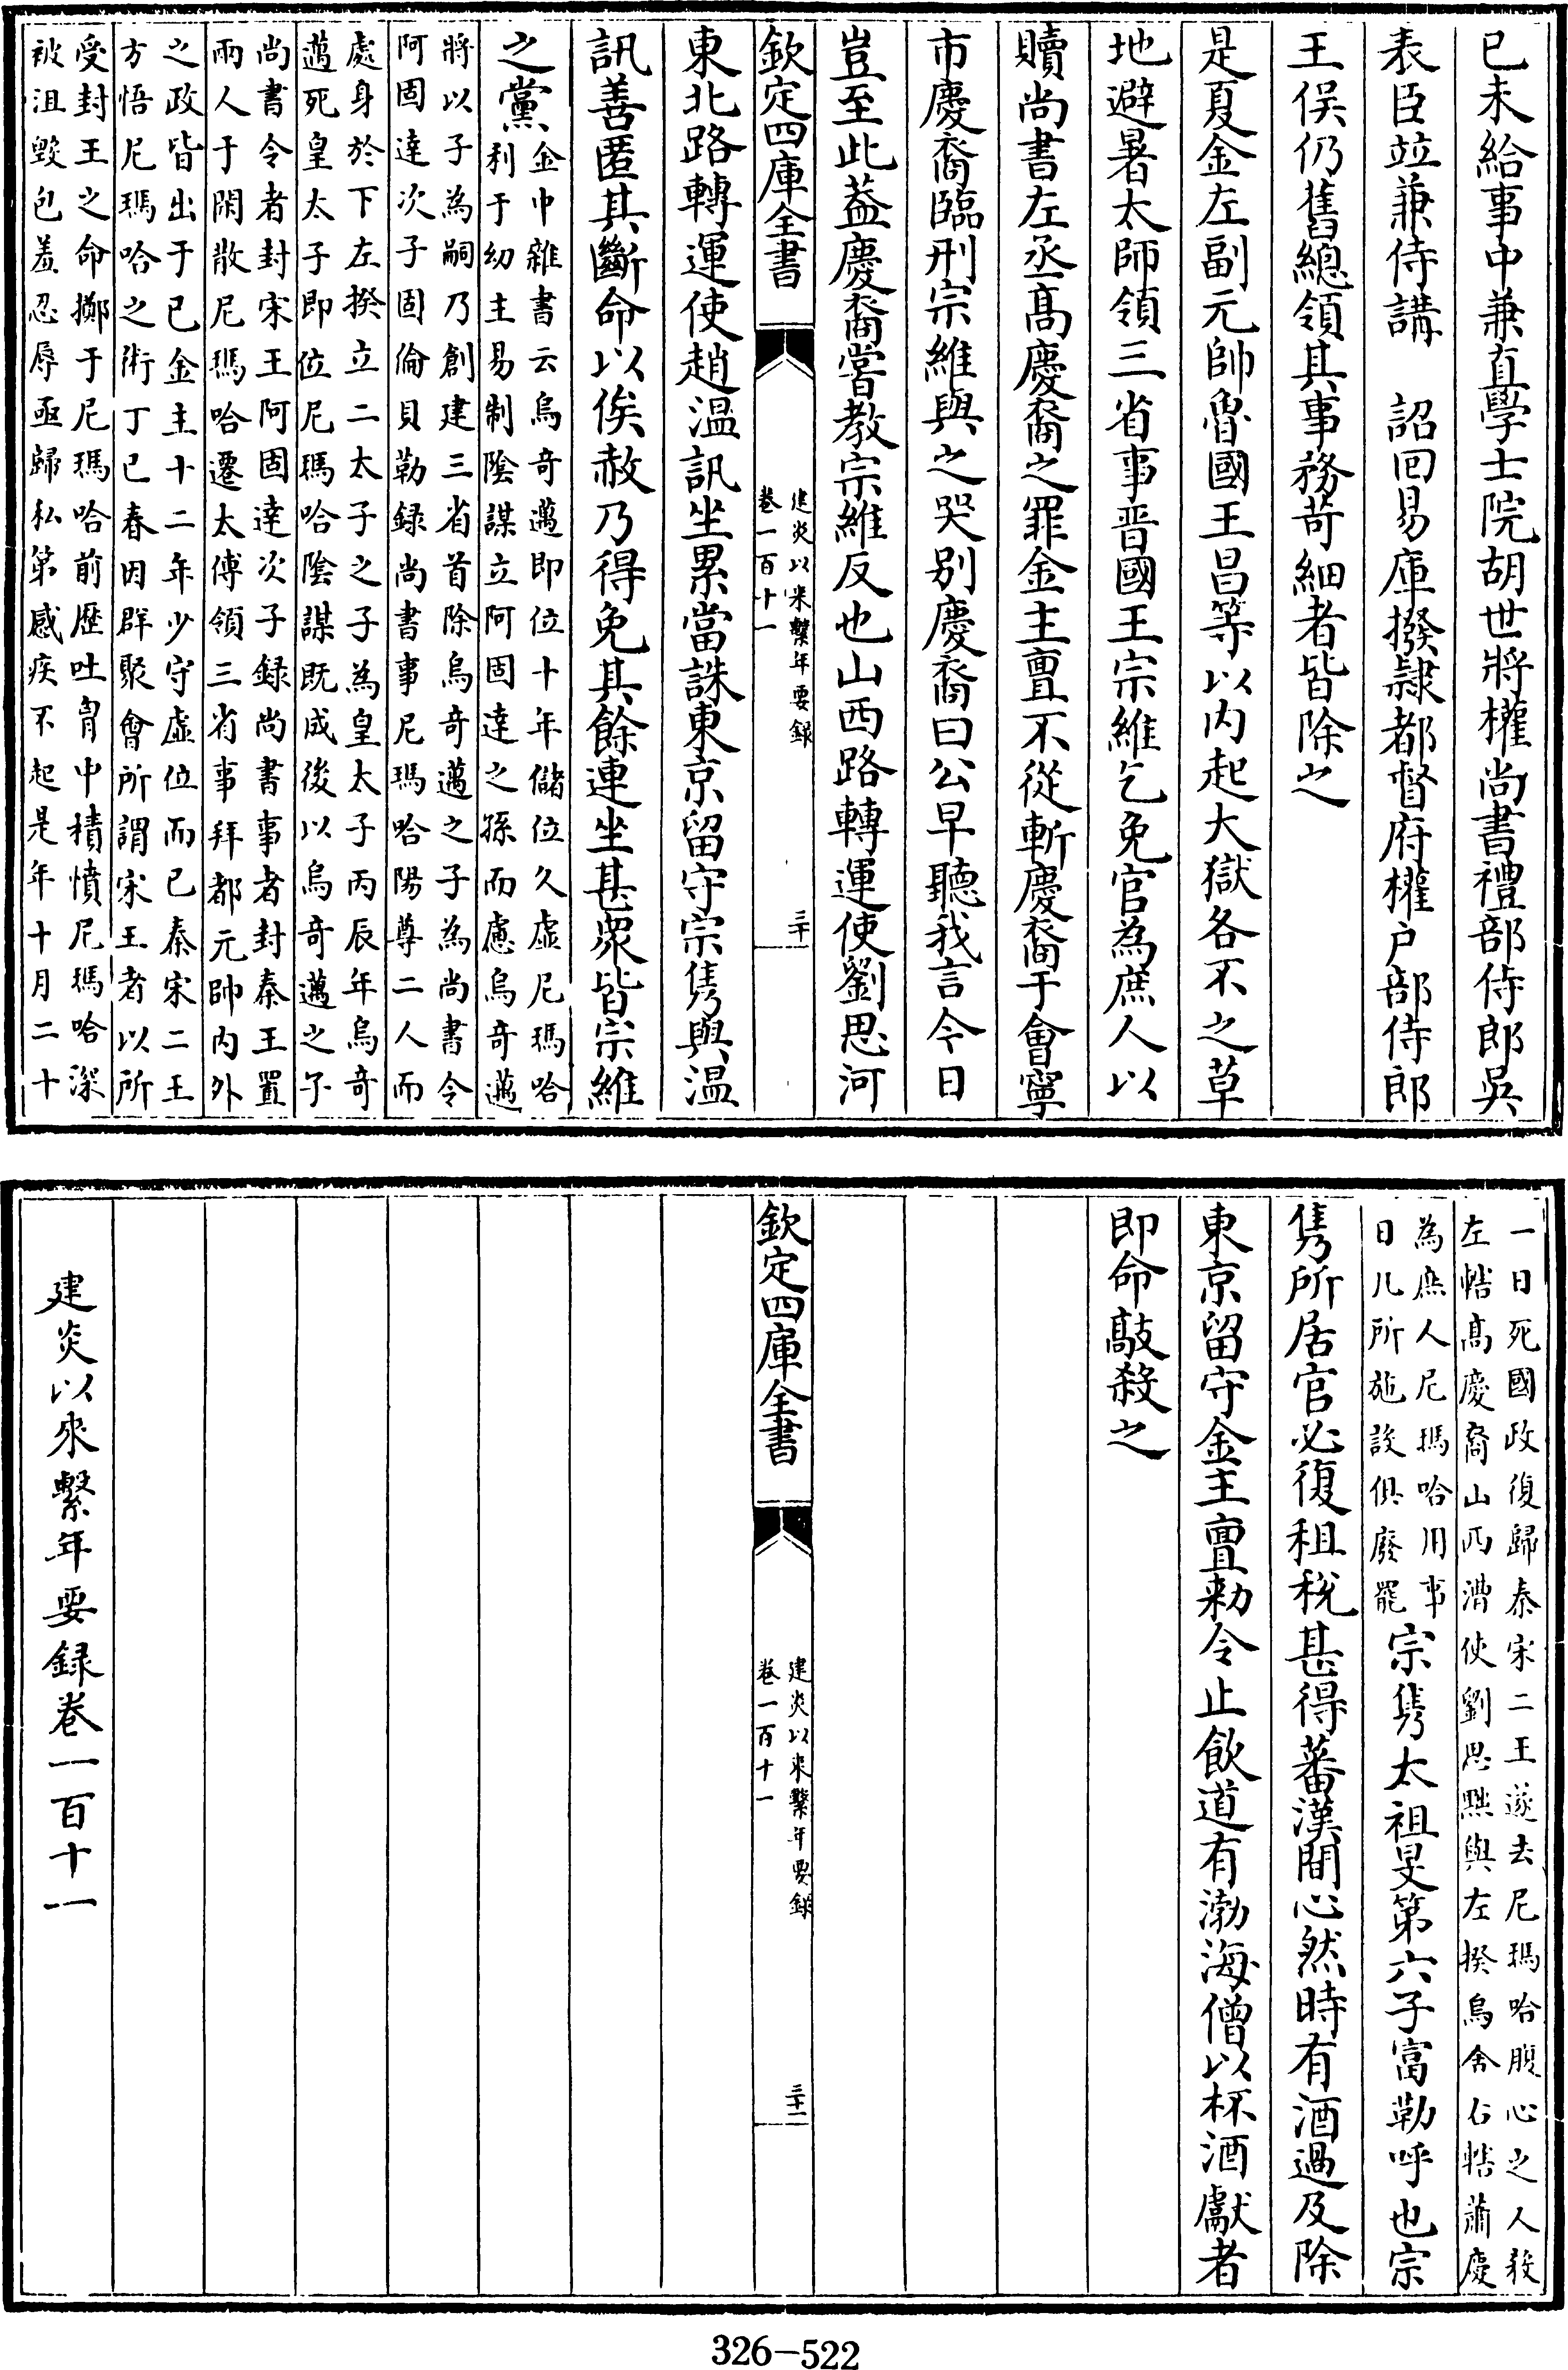 已未給事中兼直學士院胡世將權尚書禮部侍郎吳
表臣竝兼侍講　詔回易庫撥隷都督府權户部侍郎
王俣仍舊總領其事務苛細者皆除之
是夏金左副元帥魯國王昌等以内起大獄各不之草
地避暑太師領三省事晋國王宗維乞免官為庶人以
贖尚書左丞髙慶裔之罪金主亶不從斬慶裔于㑹寧
市慶裔臨刑宗維與之哭别慶裔曰公早聽我言今日
豈至此葢慶裔嘗教宗維反也山西路轉運使劉思河
欽定四庫全書
建炎以来繫年要録
卷一百十一
三十
東北路轉運使趙温訊坐累當誅東京留守宗雋與温
訊善匿其斷命以俟赦乃得免其餘連坐甚衆皆宗維
之黨
金中雜書云烏竒邁即位十年儲位久虚尼瑪哈
利于幼主易制隂謀立阿固達之孫而慮烏竒邁
將以子為嗣乃創建三省首除烏竒邁之子為尚書令
阿固達次子固倫貝勒録尚書事尼瑪哈陽尊二人而
處身於下左揆立二太子之子為皇太子丙辰年烏竒
邁死皇太子即位尼瑪哈隂謀既成後以烏竒邁之子
尚書令者封宋王阿固達次子録尚書事者封秦王置
兩人于閑散尼瑪哈遷太傅領三省事拜都元帥内外
之政皆出于已金主十二年少守虚位而已秦宋二王
方悟尼瑪哈之術丁已春因群聚㑹所謂宋王者以所
受封王之命擲于尼瑪哈前歴吐胷中積憤尼瑪哈深
被沮毀包羞忍辱亟歸私第感疾不起是年十月二十
一日死國政復歸秦宋二王遂去尼瑪哈腹心之人殺
左轄髙慶裔山西漕使劉思黜與左揆烏舍右轄蕭慶
為庶人尼瑪哈用事
日凡所施設俱廢罷
宗雋太祖旻第六子富勒呼也宗
雋所居官必復租税甚得蕃漢間心然時有酒過及除
東京留守金主亶勅令止飲道有渤海僧以杯酒獻者
即命敲殺之
欽定四庫全書
建炎以来繫年要録
卷一百十一
三十一
建炎以來繫年要録卷一百十一
326-522